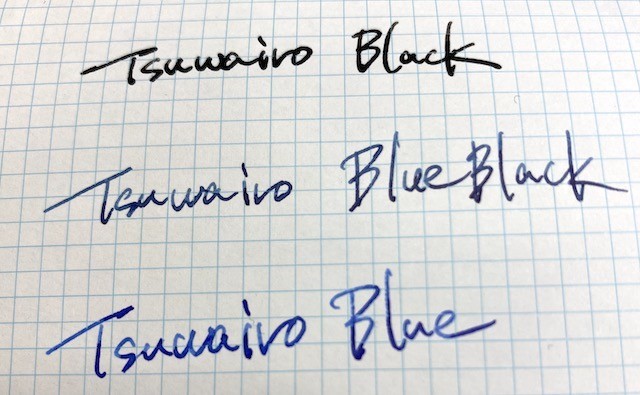 Tsuwairo Black
Tsuwairo BlueBlack
Tsuwairo Blue